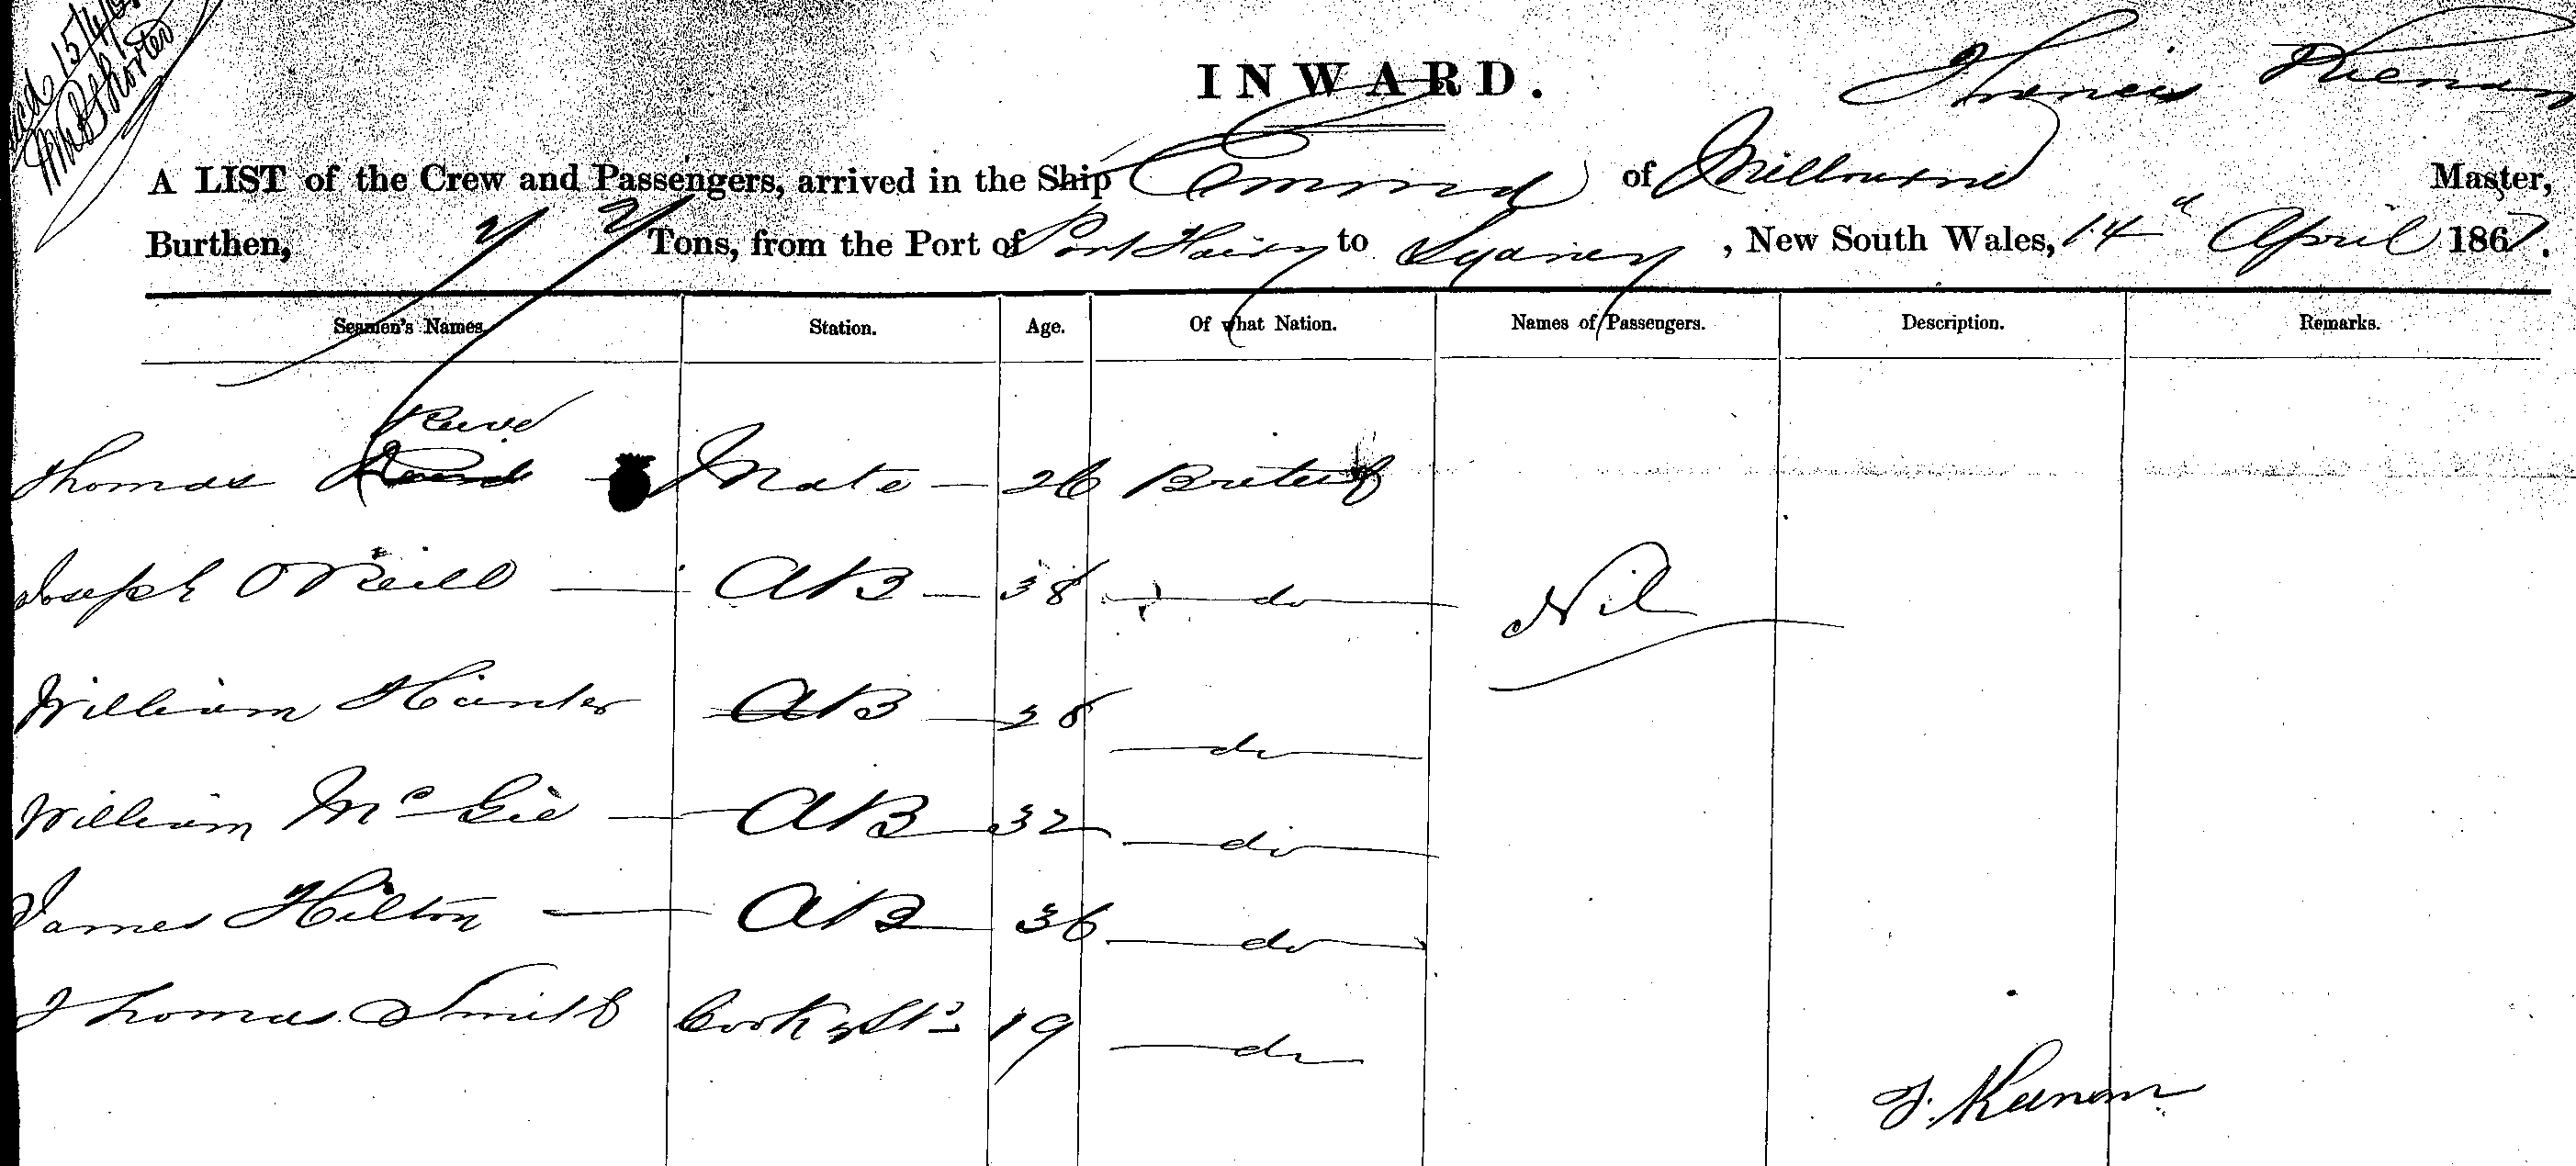 15/4/6
INWARD.
Francis Keenan
A LIST of the Crew and Passengers, arrived in the Ship Emma of Melbourne Master,
Burthen, 77 Tons, from the Port of Port Fairy to Sydney, New South Wales, 14 April 1867.
Seamen's Names. Station. Age. Of what Nation. Names of Passengers. Description. Remarks.
Thomas Mate - 26 British
Joseph O'Neill - AB - 38 do Nil
William Hunter AB - 28 do
William Mc Gie - AB 32 do
James Hilton - AB 36 do
Thomas Smith Cook & Std 19 do
F. Keenan